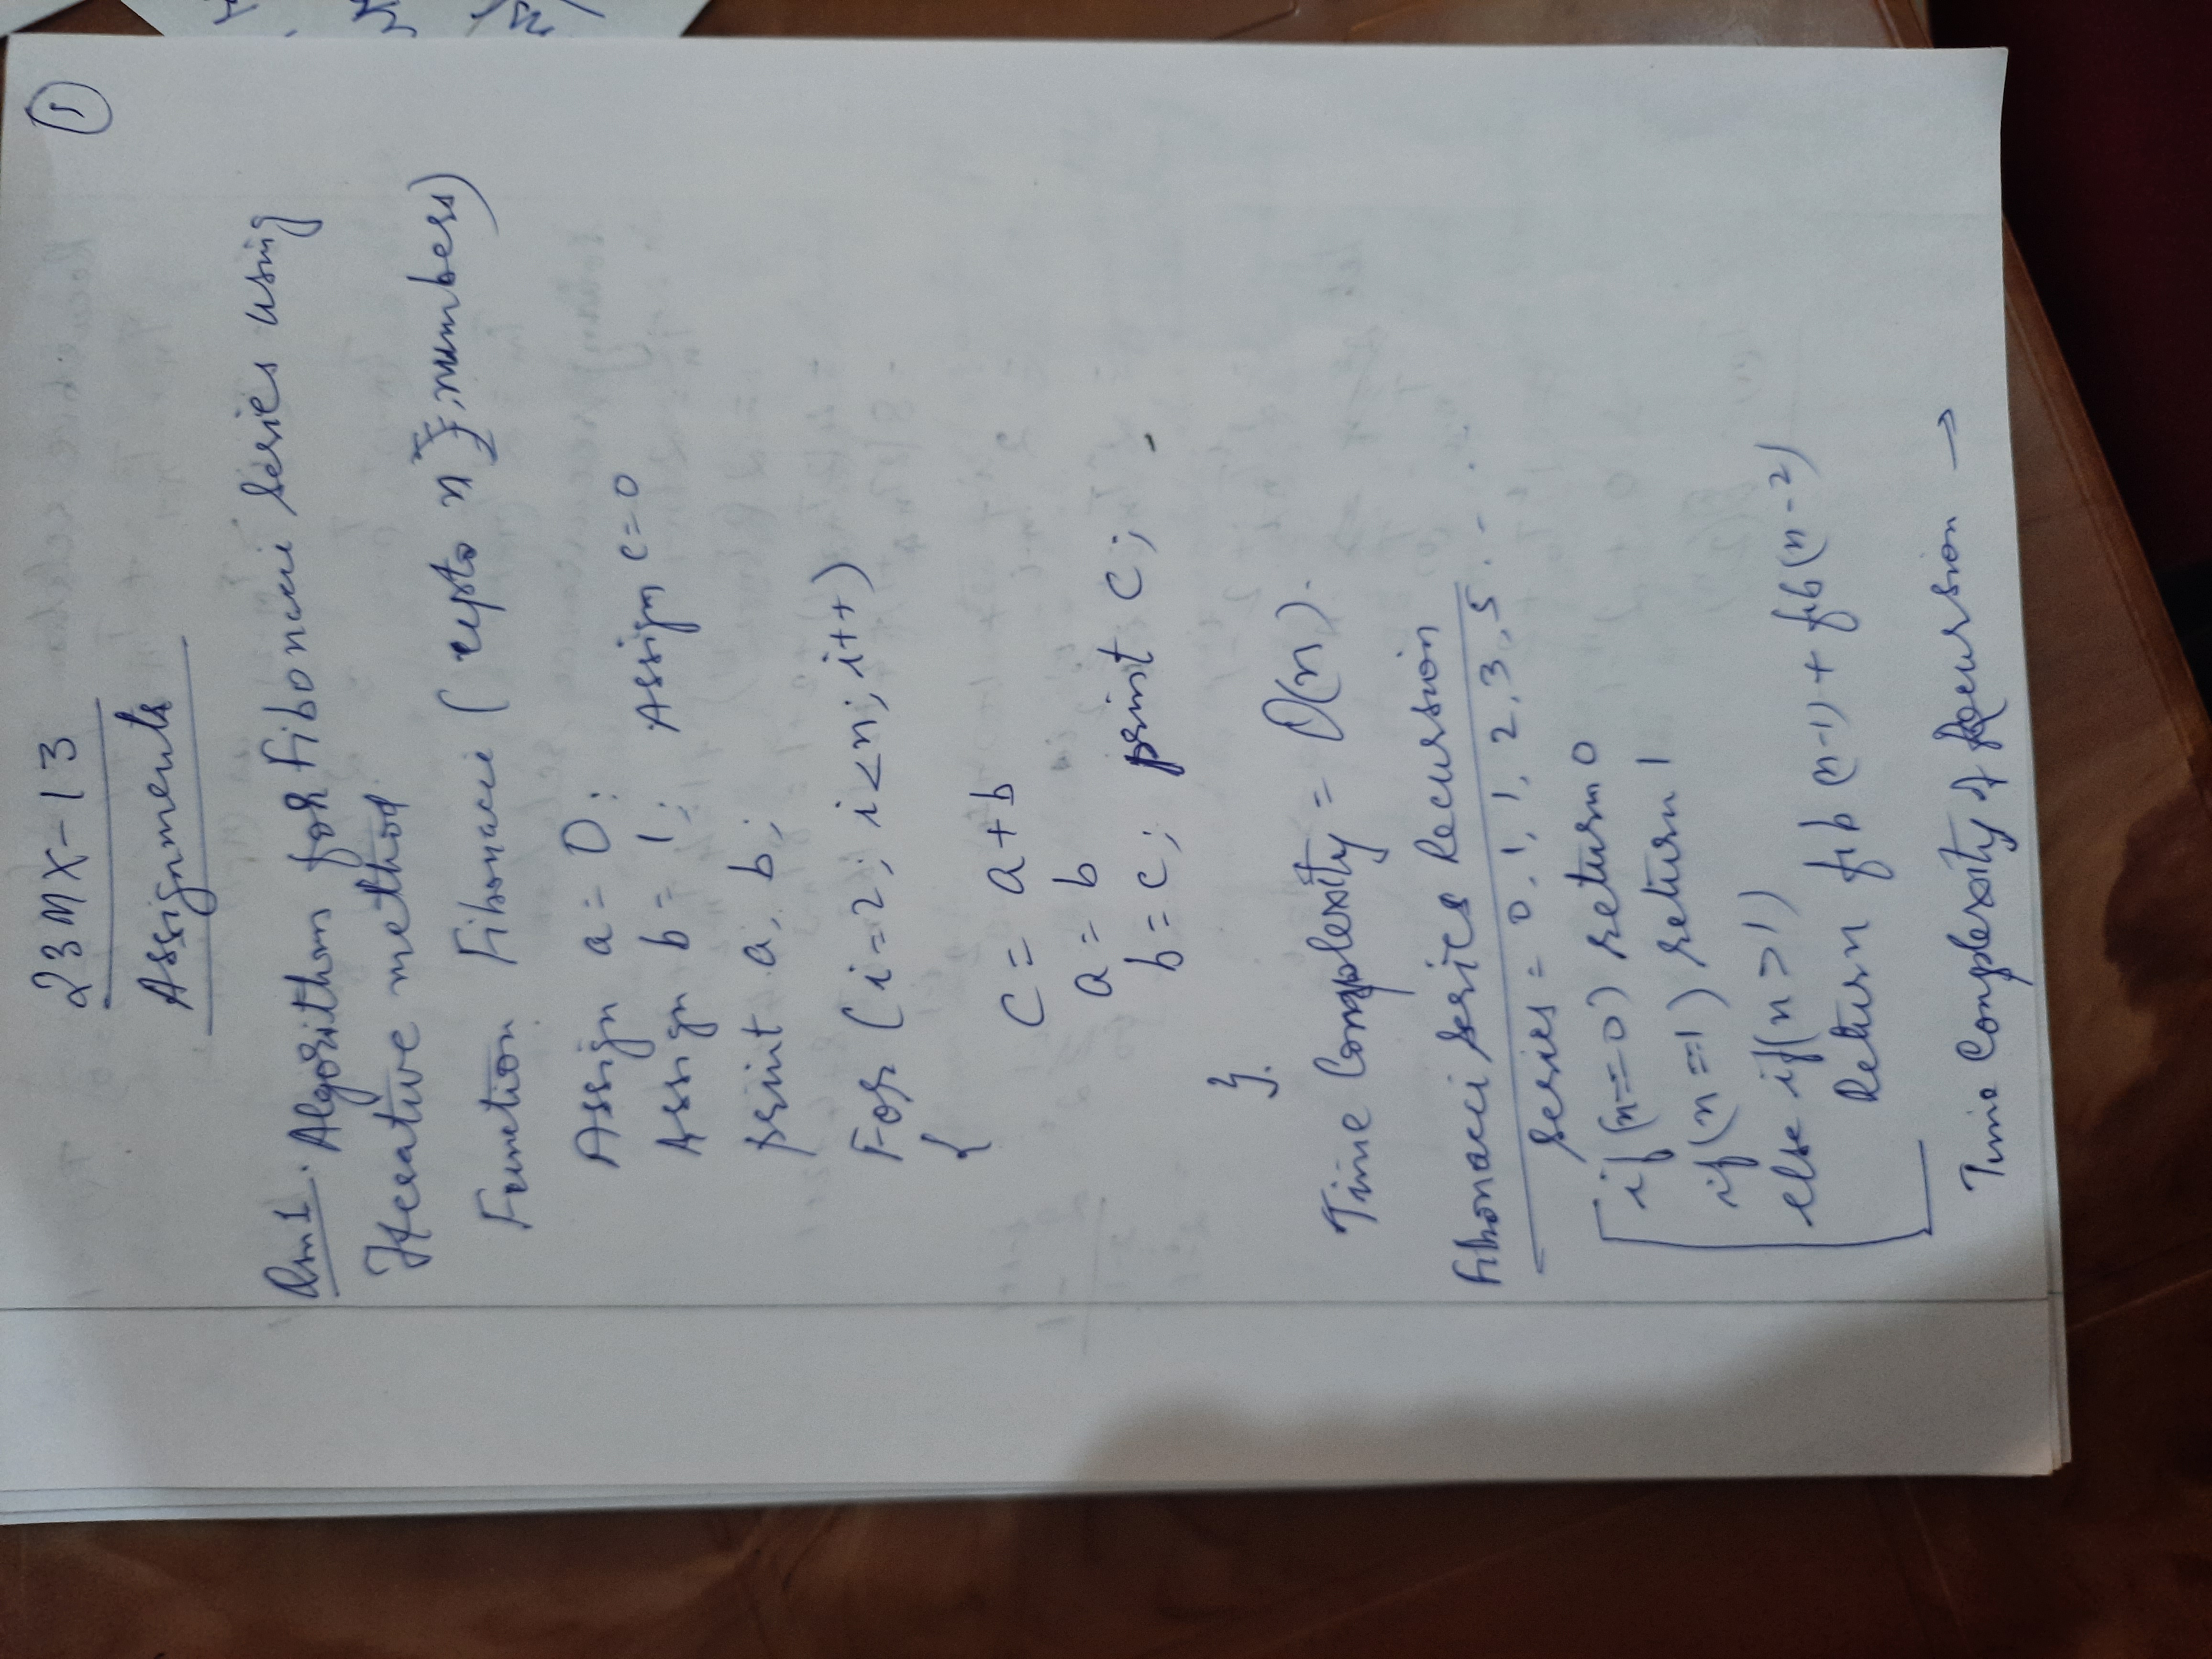 23MX-13
1
Assignments
Qn1. Algorithm for Fibonacci Series using
Iterative method
Function Fibonacci ( upto n numbers)
Assign a = 0;
Assign b = 1; Assign c=0
print a, b;
For (i=2; i<n; i++)
{
c = a+b
a = b
b = c; print c;
}.
Time Complexity = O(n).
Fibonacci Series Recursion
Series = 0, 1, 1, 2, 3, 5. - . .
if (n==0) return 0
if (n==1) return 1
else if(n>1)
Return fib (n-1) + fib (n-2)
Time Complexity of Recursion →